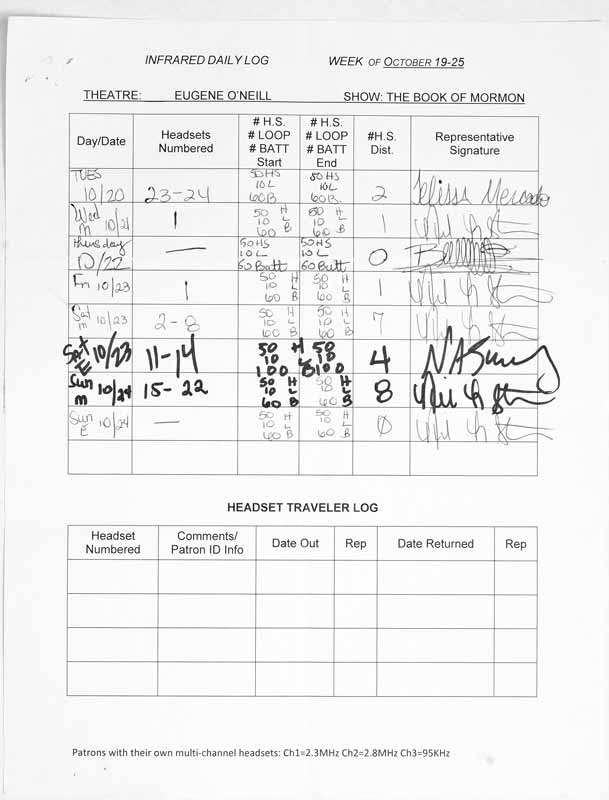 INFRARED DAILY LOG WEEK OF OCTOBER 19-25
THEATRE: EUGENE O'NEILL SHOW: THE BOOK OF MORMON
Day/Date Headsets Numbered # H.S. # LOOP # BATT Start # H.S. # LOOP # BATT End #H.S. Dist. Representative Signature
TUES 10/20 23-24 50 HS 10 L 60 B 50 HS 10 L 60 B 2 Mercado
Wed M 10/21 1 50 H 10 L 60 B 50 H 10 L 60 B 1
Thursday 10/22 — 50 HS 10 L 60 Batt 50 HS 10 L 60 Batt 0
Fri 10/23 1 50 H 10 L 60 B 50 H 10 L 60 B 1
Sat m 10/23 2-8 50 H 10 L 60 B 50 H 10 L 60 B 7
Sat E 10/23 11-14 50 H 10 L 100 B 50 10 100 4
Sun m 10/24 15-22 50 H 10 L 60 B 50 H 10 L 60 B 8
Sun E 10/24 — 50 H 10 L 60 B 50 H 10 L 60 B 0
HEADSET TRAVELER LOG
Headset Numbered Comments/ Patron ID Info Date Out Rep Date Returned Rep
Patrons with their own multi-channel headsets: Ch1=2.3MHz Ch2=2.8MHz Ch3=95KHz